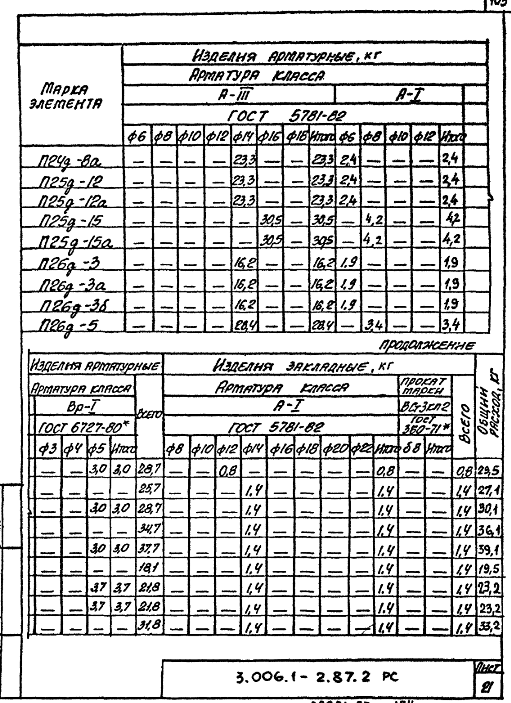 Марка элемента
Изделия арматурные, кг
Арматура класса
А-III А-I
ГОСТ 5781-82
ф6 ф8 ф10 ф12 ф14 ф16 ф18 Итого ф6 ф8 ф10 ф12 Итого
П24д-8а — — — — 23,3 — — 23,3 2,4 — — — 2,4
П25д-12 — — — — 23,3 — — 23,3 2,4 — — — 2,4
П25д-12а — — — — 23,3 — — 23,3 2,4 — — — 2,4
П25д-15 — — — — — 30,5 — 30,5 — 4,2 — — 4,2
П25д-15а — — — — — 30,5 — 30,5 — 4,2 — — 4,2
П26д-3 — — — — 16,2 — — 16,2 1,9 — — — 1,9
П26д-3а — — — — 16,2 — — 16,2 1,9 — — — 1,9
П26д-3б — — — — 16,2 — — 16,2 1,9 — — — 1,9
П26д-5 — — — — 28,4 — — 28,4 — 3,4 — — 3,4
продолжение
Изделия арматурные Изделия закладные, кг Общий расход, кг
Арматура класса Всего Арматура класса Прокат марки Всего
Вр-I А-I ВСт3кп2
ГОСТ 6727-80* ГОСТ 5781-82 ГОСТ 380-71*
ф3 ф4 ф5 Итого ф8 ф10 ф12 ф14 ф16 ф18 ф20 ф22 Итого δ8 Итого
— — 3,0 3,0 28,7 — — 0,8 — — — — — 0,8 — — 0,8 29,5
— — — — 25,7 — — — 1,4 — — — — 1,4 — — 1,4 27,1
— — 3,0 3,0 28,7 — — — 1,4 — — — — 1,4 — — 1,4 30,1
— — — — 34,7 — — — 1,4 — — — — 1,4 — — 1,4 36,1
— — 3,0 3,0 37,7 — — — 1,4 — — — — 1,4 — — 1,4 39,1
— — — — 18,1 — — — 1,4 — — — — 1,4 — — 1,4 19,5
— — 3,7 3,7 21,8 — — — 1,4 — — — — 1,4 — — 1,4 23,2
— — 3,7 3,7 21,8 — — — 1,4 — — — — 1,4 — — 1,4 23,2
— — — — 31,8 — — — 1,4 — — — — 1,4 — — 1,4 33,2
3.006.1-2.87.2 РС
Лист
21